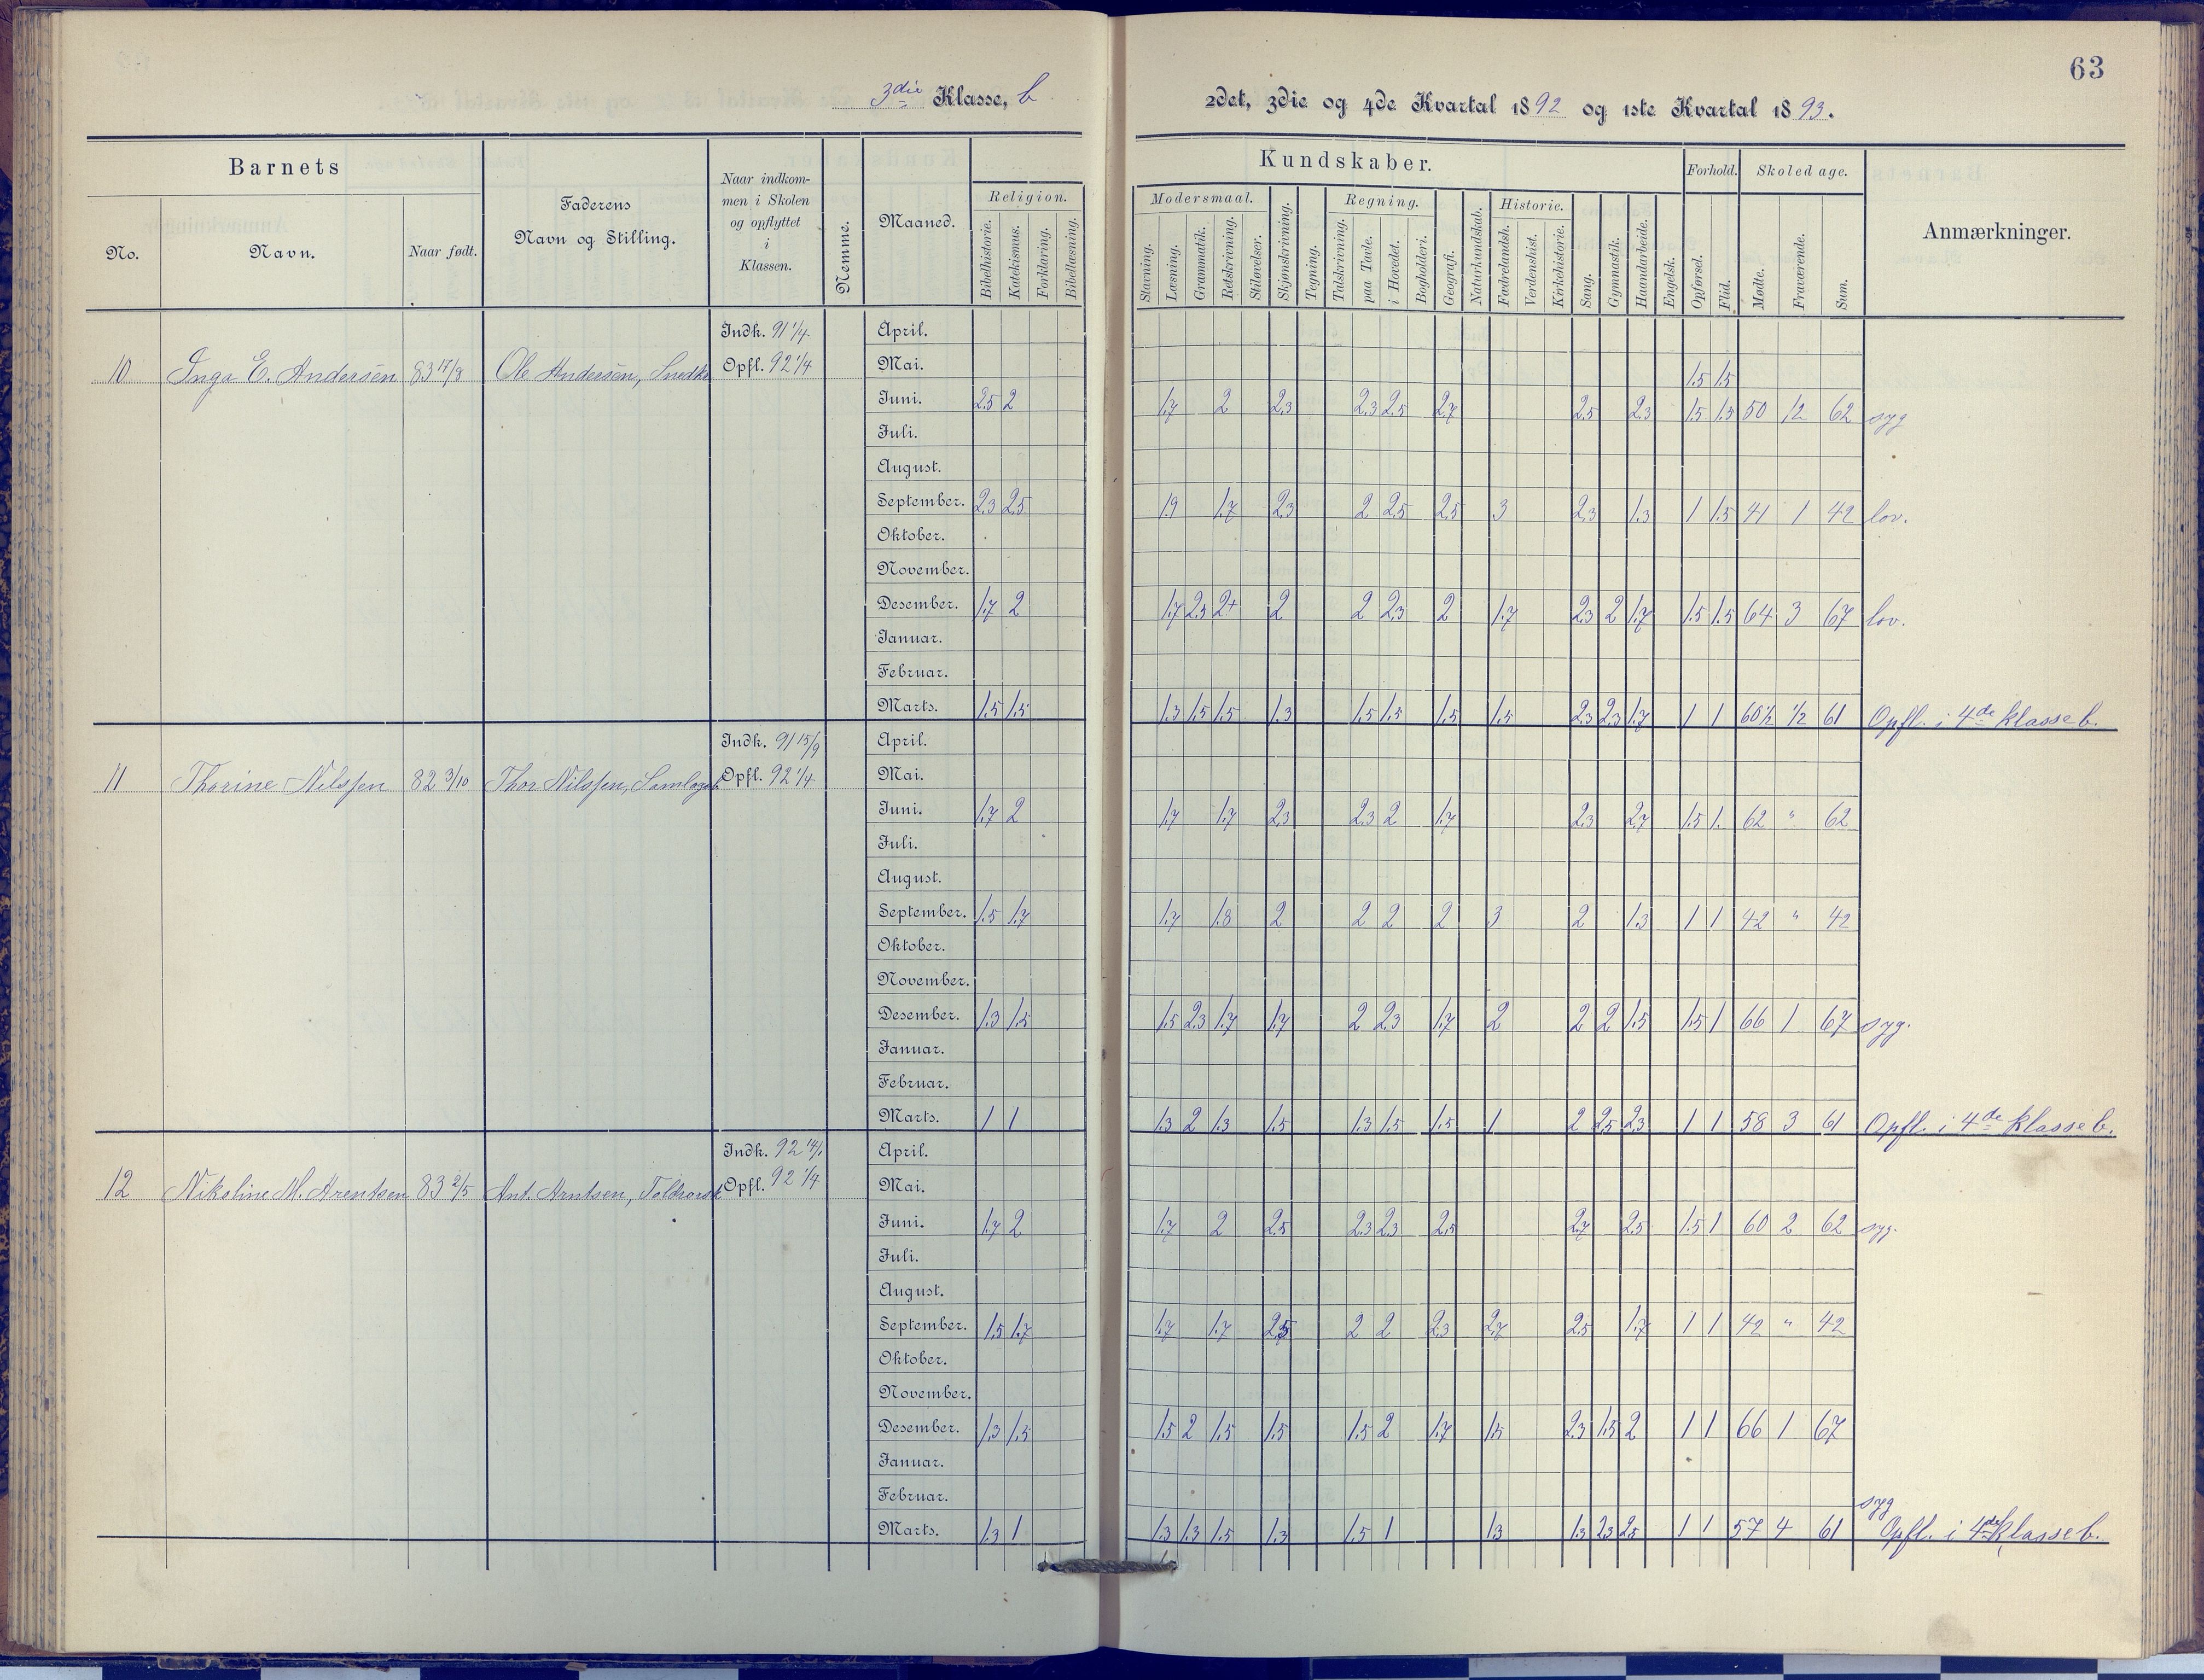 63
3die Klasse, b
2det, 3die og 4de Kvartal 1892 og 1ste Kvartal 1893.
Barnets
No.
Navn.
Naar født.
Faderens
Navn og Stilling.
Naar indkom-
men i Skolen
og opflyttet
i
Klassen.
Nemme.
Maaned.
Kundskaber.
Religion.
Bibelhistorie. Katekismus. Forklaring. Bibellæsning.
Modersmaal.
Stavning. Læsning. Grammatik. Retskrivning. Stiløvelser.
Skjønskrivning. Tegning.
Regning.
Talskrivning. paa Tavle. i Hovedet. Bogholderi.
Geografi. Naturkundskab.
Historie.
Fædrelandsh. Verdenshist. Kirkehistorie.
Sang. Gymnastik. Haandarbeide. Engelsk.
Forhold.
Opførsel. Flid.
Skoledage.
Mødte. Fraværende. Sum.
Anmærkninger.
Indk. 91 1/4 April.
10 Inga E. Andersen 83 17/8 Ole Andersen, Snedk Opfl. 92 1/4 Mai. 1.5 1.5
Juni. 2.5 2 1.7 2 2.3 2.3 2.5 2.7 2.5 2.3 1.5 1.5 50 12 62 syg
Juli.
August.
September. 2.3 2.5 1.9 1.7 2.3 2 2.5 2.5 3 2.3 1.3 1 1.5 41 1 42 lov.
Oktober.
November.
Desember. 1.7 2 1.7 2.3 2+ 2 2 2.3 2 1.7 2.3 2 1.7 1.5 1.5 64 3 67 lov.
Januar.
Februar.
Marts. 1.5 1.5 1.3 1.5 1.5 1.3 1.5 1.5 1.5 1.5 2.3 2.3 1.7 1 1 60 1/2 1/2 61 Opfl. i 4de klasse b.
Indk. 91 15/9 April.
11 Thorine Nilssen 82 3/10 Thor Nilssen, Opfl. 92 1/4 Mai.
Juni. 1.7 2 1.7 1.7 2.3 2.3 2 1.7 2.3 2.7 1.5 1. 62 " 62
Juli.
August.
September. 1.5 1.7 1.7 1.8 2 2 2 2 3 2 1.3 1 1 42 " 42
Oktober.
November.
Desember. 1.3 1.5 1.5 2.3 1.7 1.7 2 2.3 1.7 2 2 2 1.5 1.5 1 66 1 67 syg.
Januar.
Februar.
Marts. 1 1 1.3 2 1.3 1.5 1.3 1.5 1.5 1 2 2.5 2.3 1 1 58 3 61 Opfl. i 4de klasse b.
Indk. 92 14/1 April.
12 Nikoline M. Arentsen 83 2/5 Ant. Arntsen, Opfl. 92 1/4 Mai.
Juni. 1.7 2 1.7 2 2.5 2.3 2.3 2.5 2.7 2.5 1.5 1 60 2 62 syg.
Juli.
August.
September. 1.5 1.7 1.7 1.7 2.5 2 2 2.3 2.7 2.5 1.7 1 1 42 " 42
Oktober.
November.
Desember. 1.3 1.5 1.5 2 1.5 1.5 1.5 2 1.7 1.5 2.3 1.5 2 1 1 66 1 67
Januar.
Februar.
syg
Marts. 1.3 1 1.3 1.3 1.5 1.3 1.5 1 1.3 1.3 2.3 2.5 1 1 57 4 61 Opfl. i 4de Klasse b.